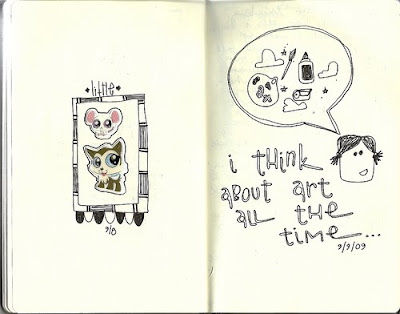 little
9/8
i think
about art
all the
time...
9/9/09